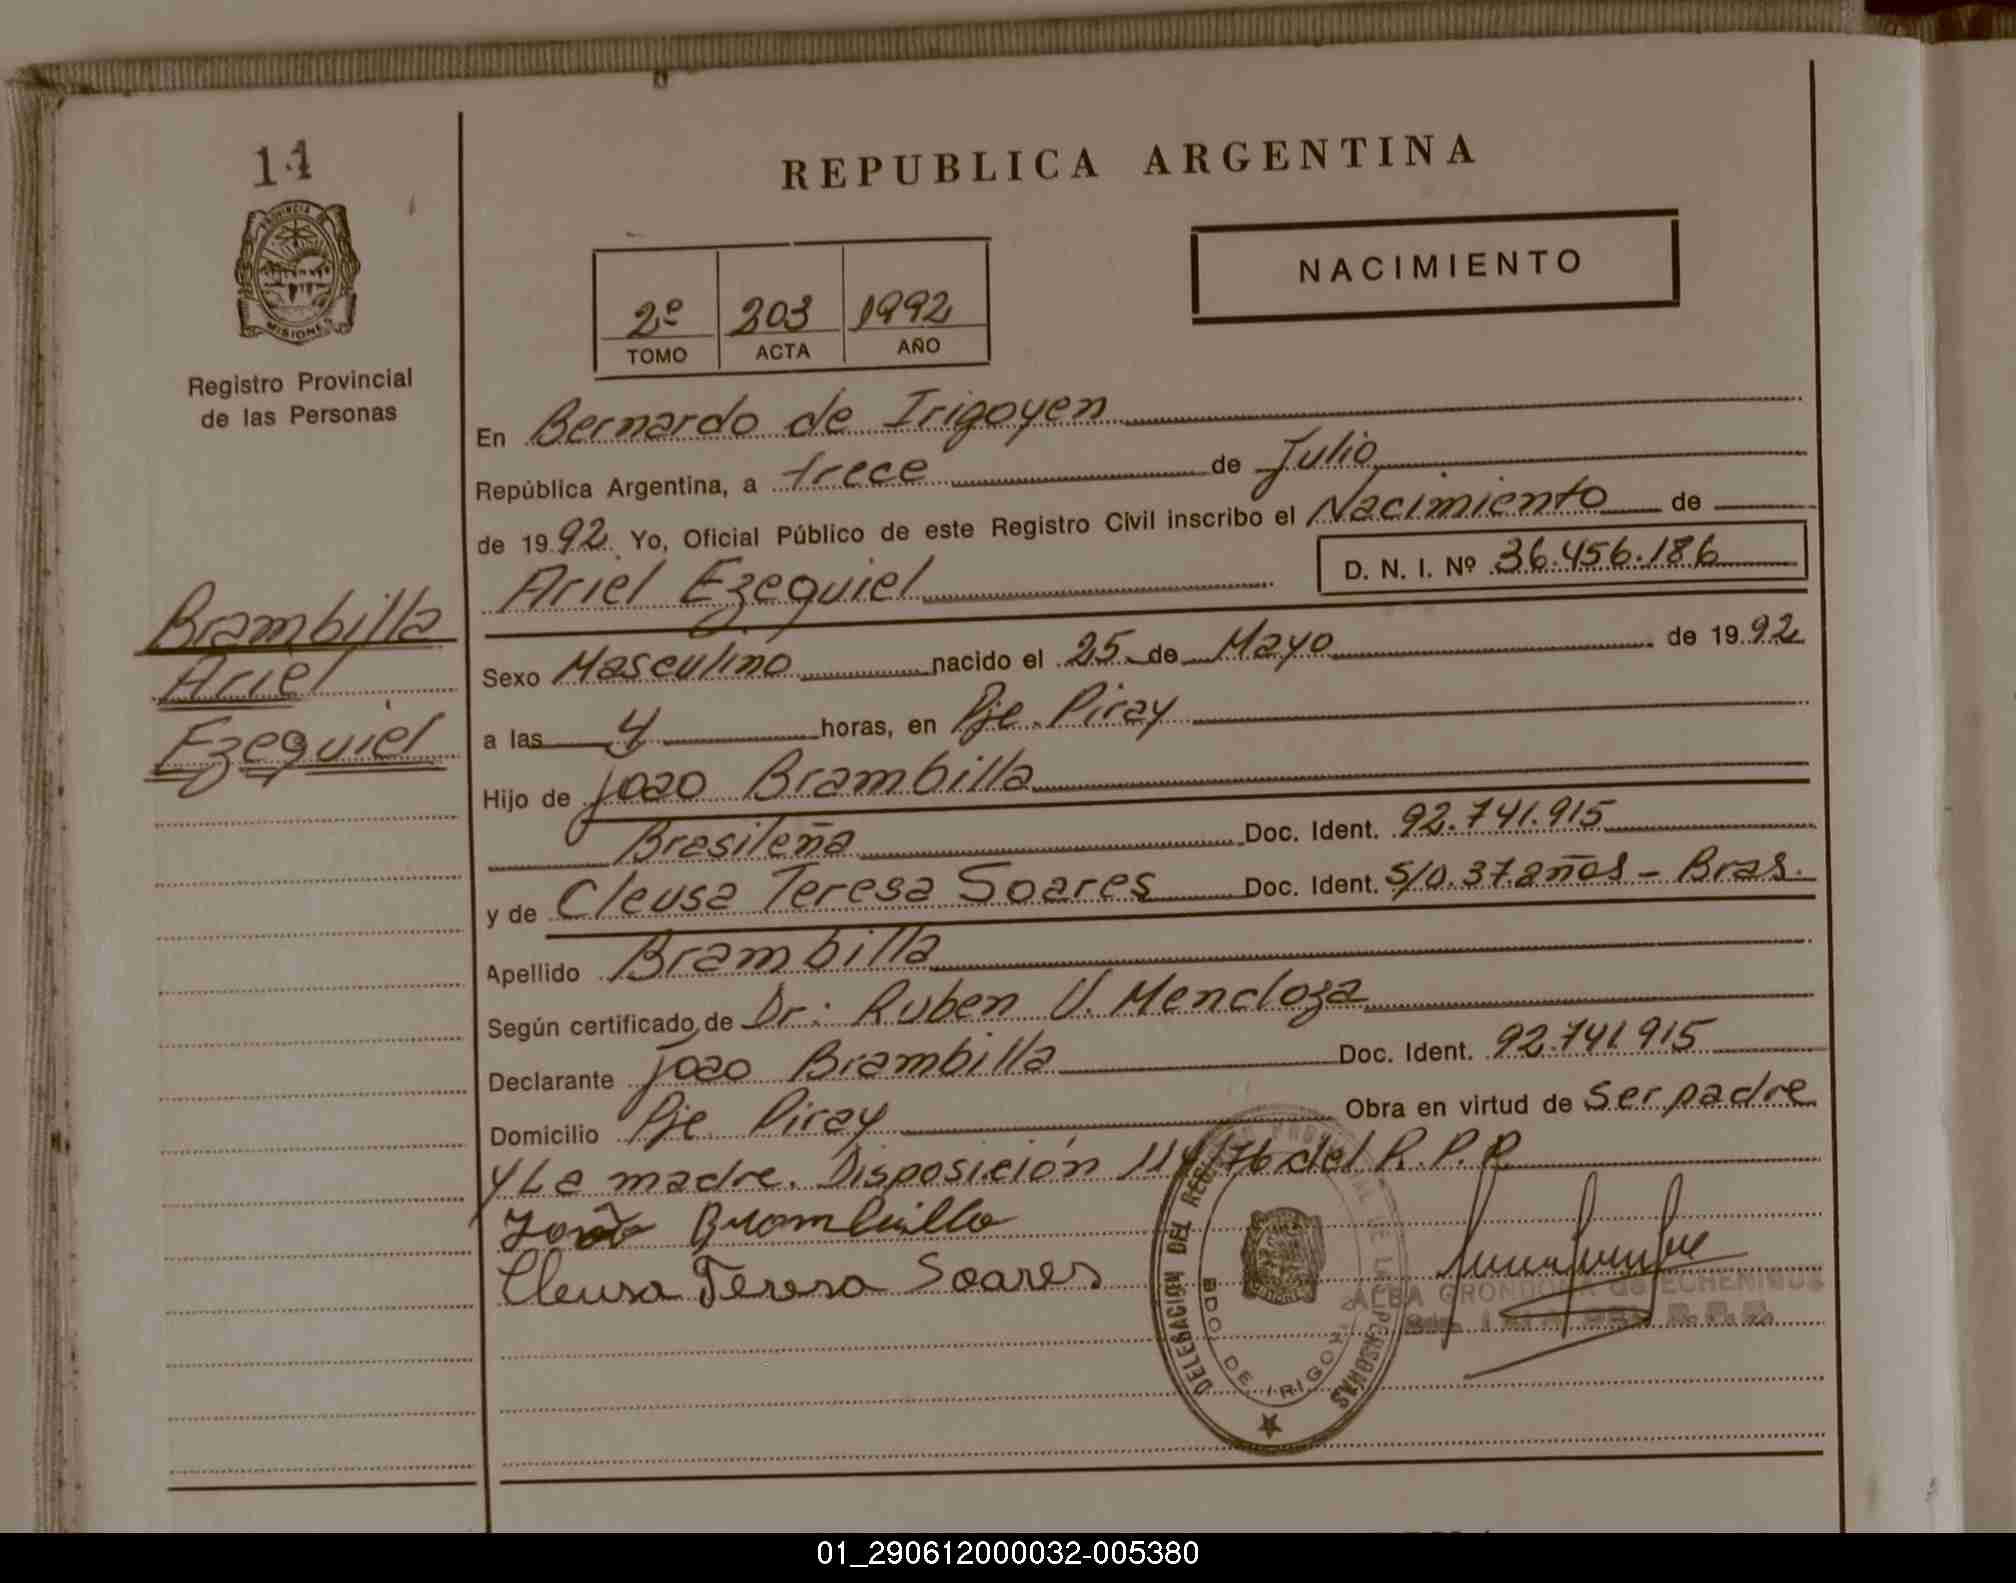 14
PROVINCIA DE
MISIONES
Registro Provincial
de las Personas
Brambilla
Ariel
Ezequiel
REPUBLICA ARGENTINA
NACIMIENTO
2º 203 1992
TOMO ACTA AÑO
En Bernardo de Irigoyen
República Argentina, a trece de Julio
de 1992 Yo, Oficial Público de este Registro Civil inscribo el Nacimiento de
Ariel Ezequiel D. N. I. Nº 36.456.186
Sexo Masculino nacido el 25 de Mayo de 1992
a las 4 horas, en Pje. Piray
Hijo de Joao Brambilla
Brasileña Doc. Ident. 92.741.915
y de Cleusa Teresa Soares Doc. Ident. S/D. 37 años - Bras.
Apellido Brambilla
Según certificado de Dr: Ruben V. Mendoza
Declarante Joao Brambilla Doc. Ident. 92.741.915
Domicilio Pje. Piray Obra en virtud de ser padre
y La madre. Disposición 114/76 del R.P.P
João Brambilla
Cleusa Teresa Soares
DELEGACION DEL REGISTRO PROVINCIAL DE LAS PERSONAS
BDO. DE IRIGOYEN
ALBA GRONDONA de ECHENIQUE
01_290612000032-005380